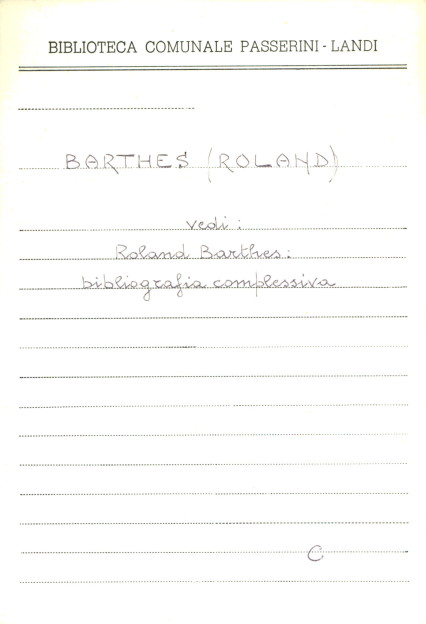 BIBLIOTECA COMUNALE PASSERINI - LANDI
BARTHES (ROLAND)
vedi:
Roland Barthes:
bibliografia complessiva
C